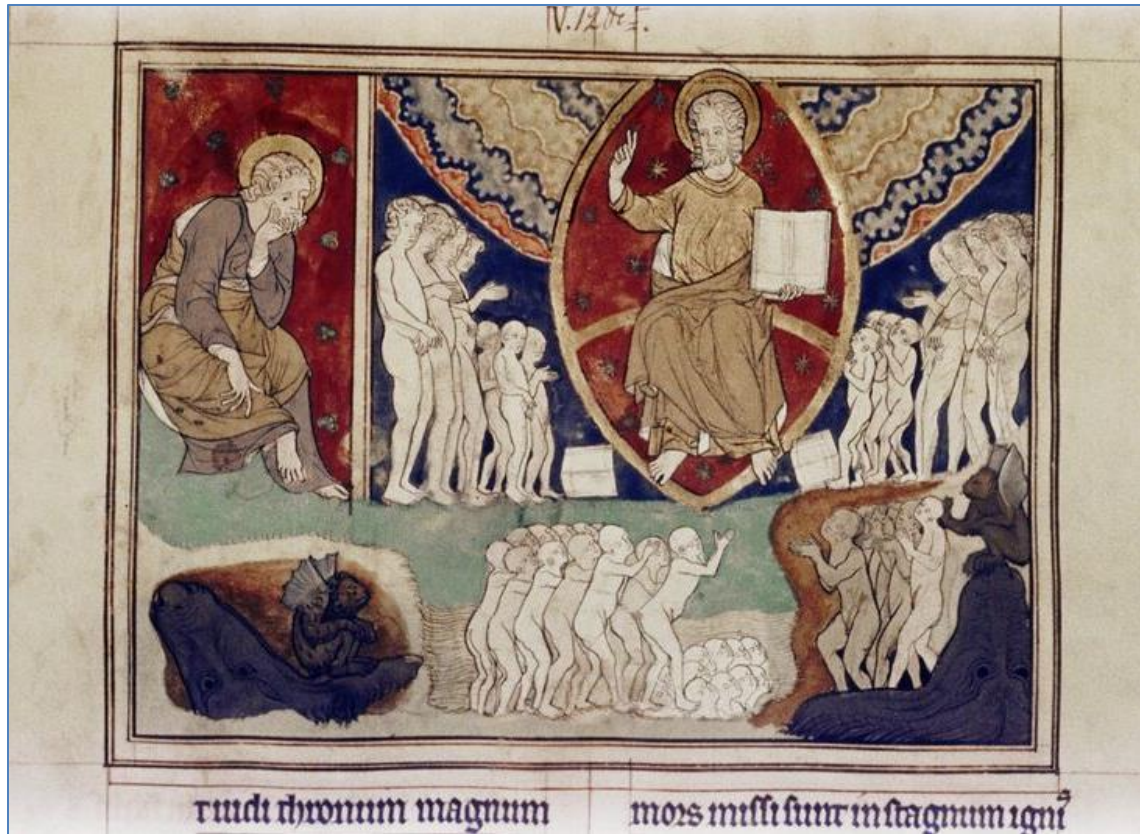 t uidi thronum magnum
mors missi sunt in stagnum igni